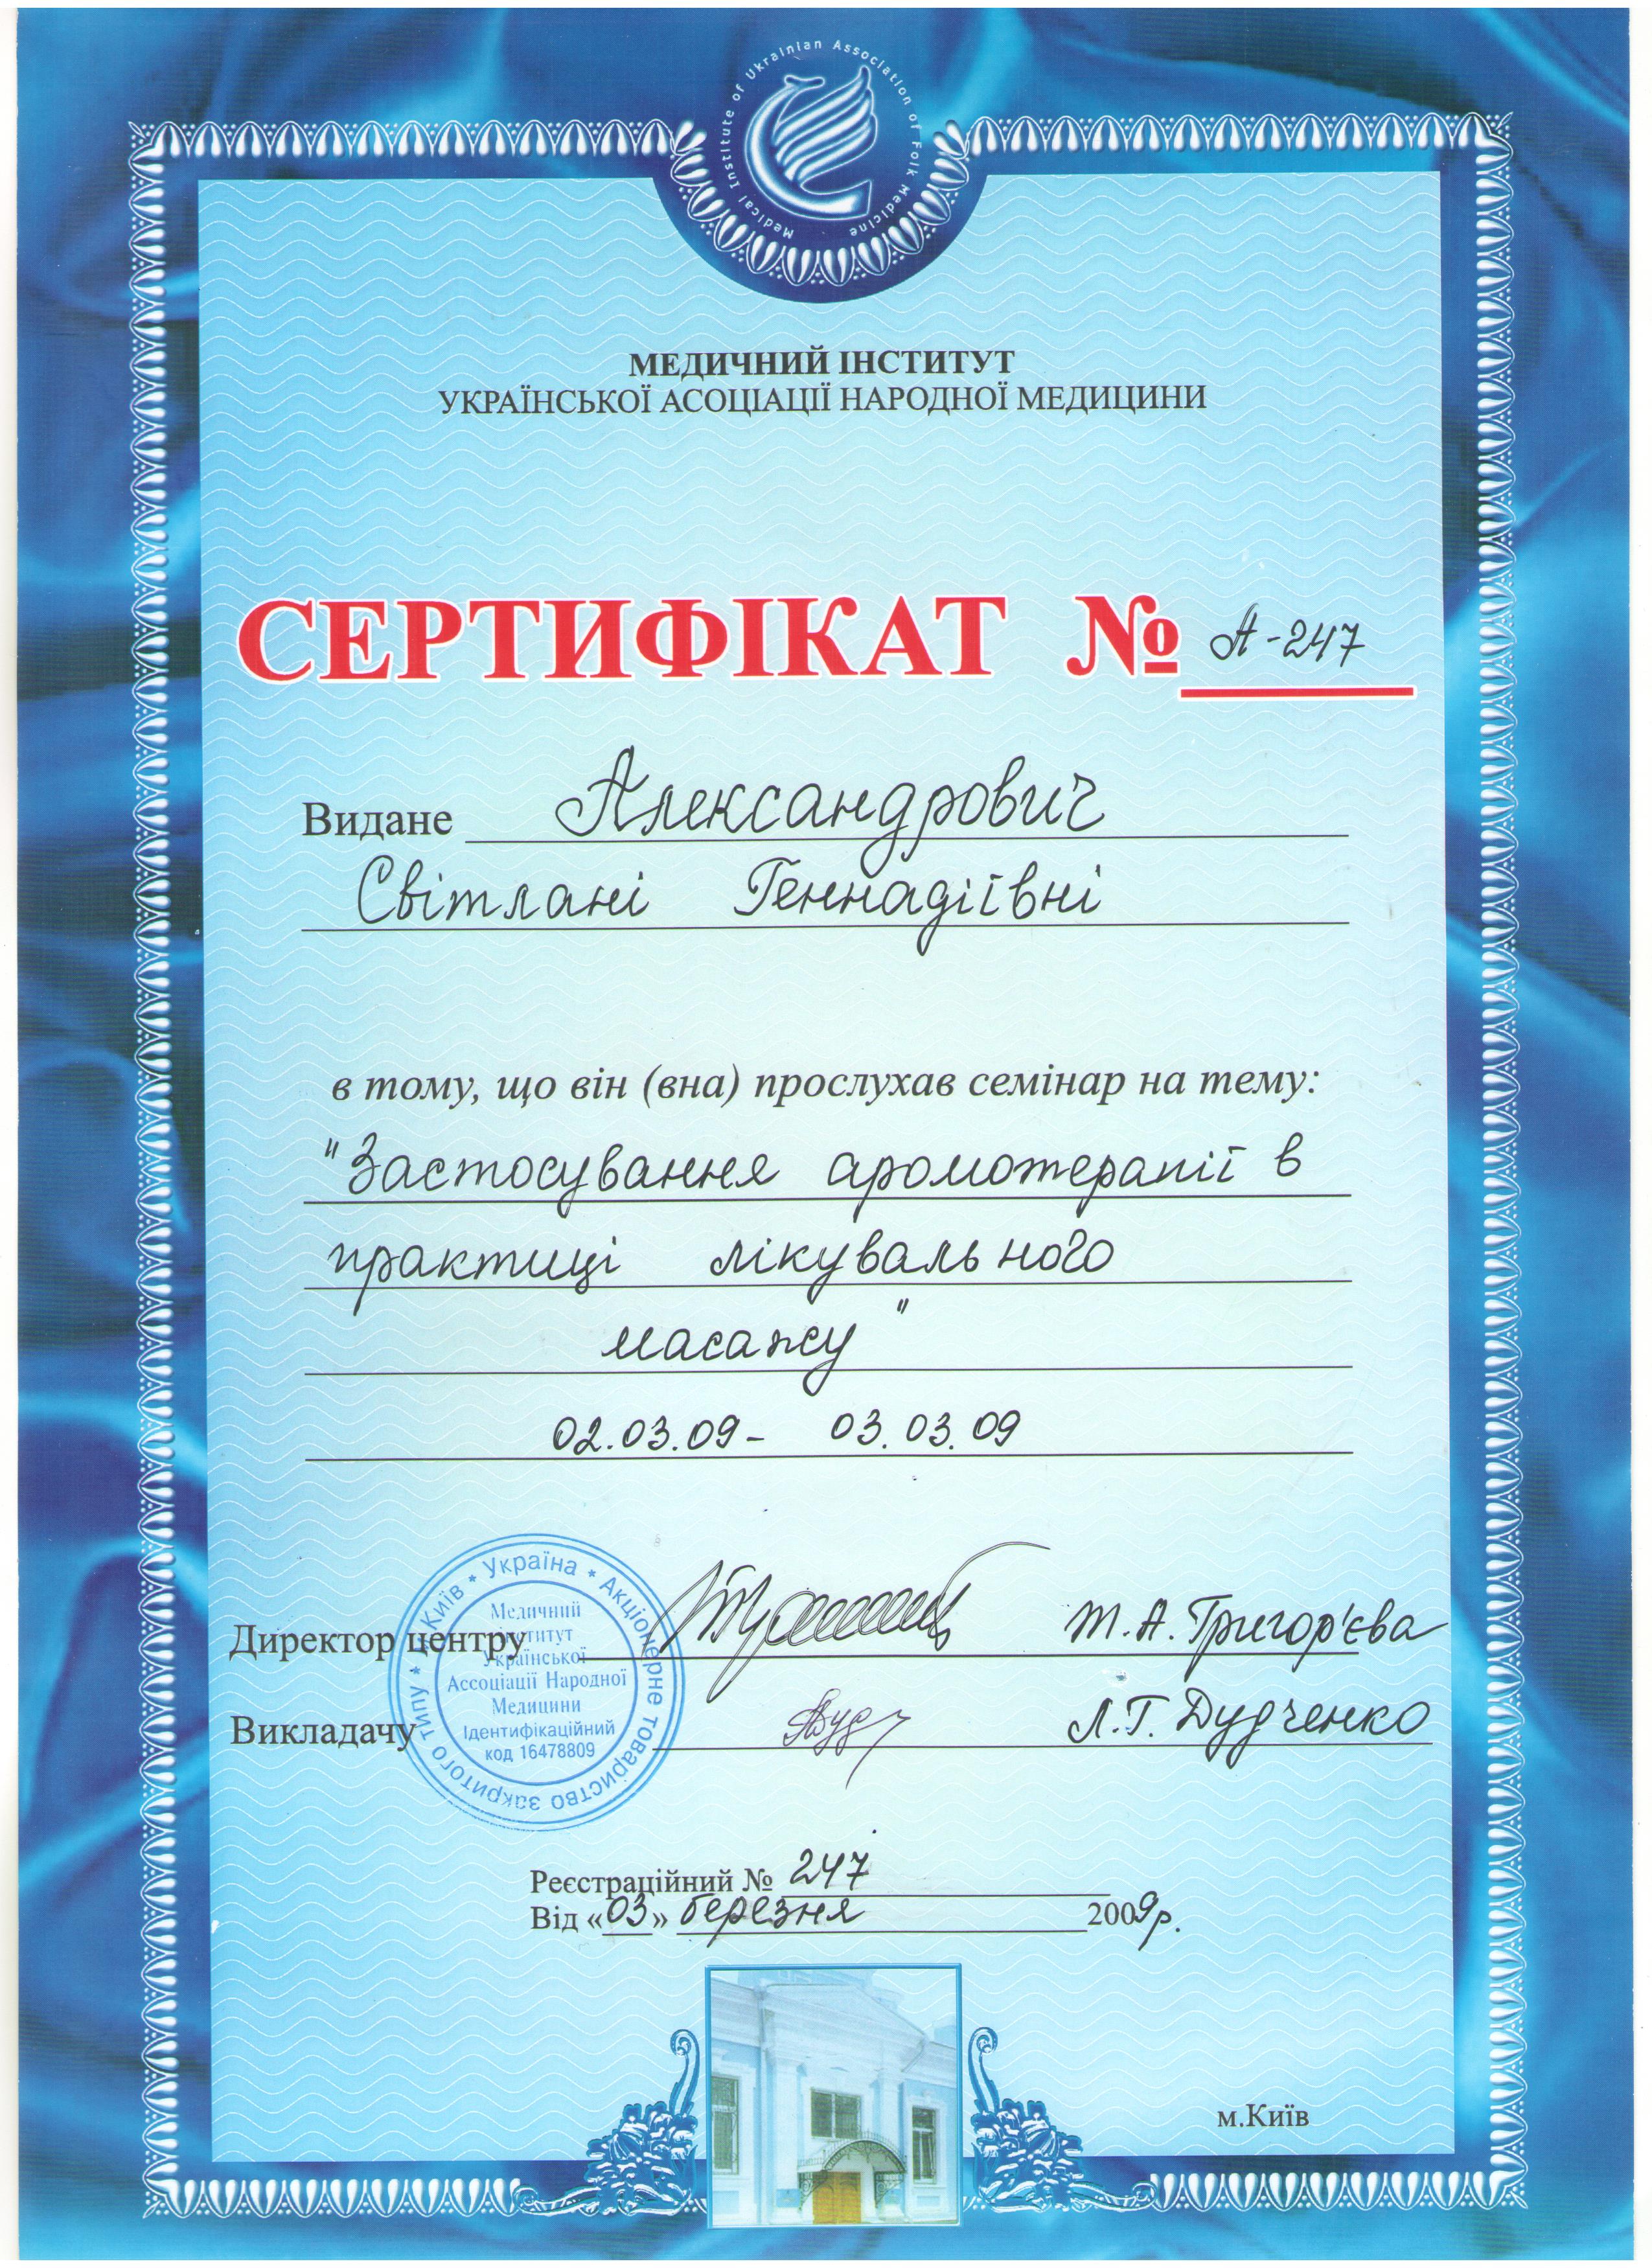 Medical Institute of Ukrainian Association of Folk Medicine
МЕДИЧНИЙ ІНСТИТУТ
УКРАЇНСЬКОЇ АСОЦІАЦІЇ НАРОДНОЇ МЕДИЦИНИ
СЕРТИФІКАТ № А-247
Видане Александрович
Світлані Геннадіївні
в тому, що він (вна) прослухав семінар на тему:
"Застосування аромотерапії в
практиці лікувального
масажу"
02.03.09 - 03.03.09
Директор центру Т.А. Григор'єва
Викладачу Л.Г. Дудченко
Київ * Україна * Акціонерне товариство закритого типу *
Медичний
Інститут
Української
Ассоціації Народної
Медицини
Ідентифікаційний
код 16478809
Реєстраційний № 247
Від «03» березня 2009р.
м.Київ